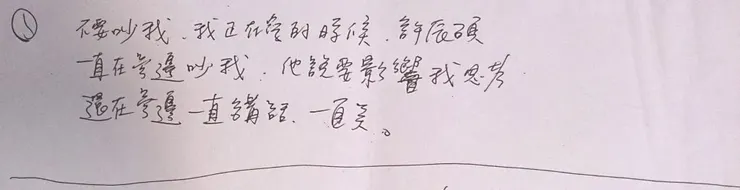 ① 不要吵我、我正在答的時候、許辰碩
一直在旁邊吵我、他說要影響我思考
還在旁邊一直講話、一直笑。